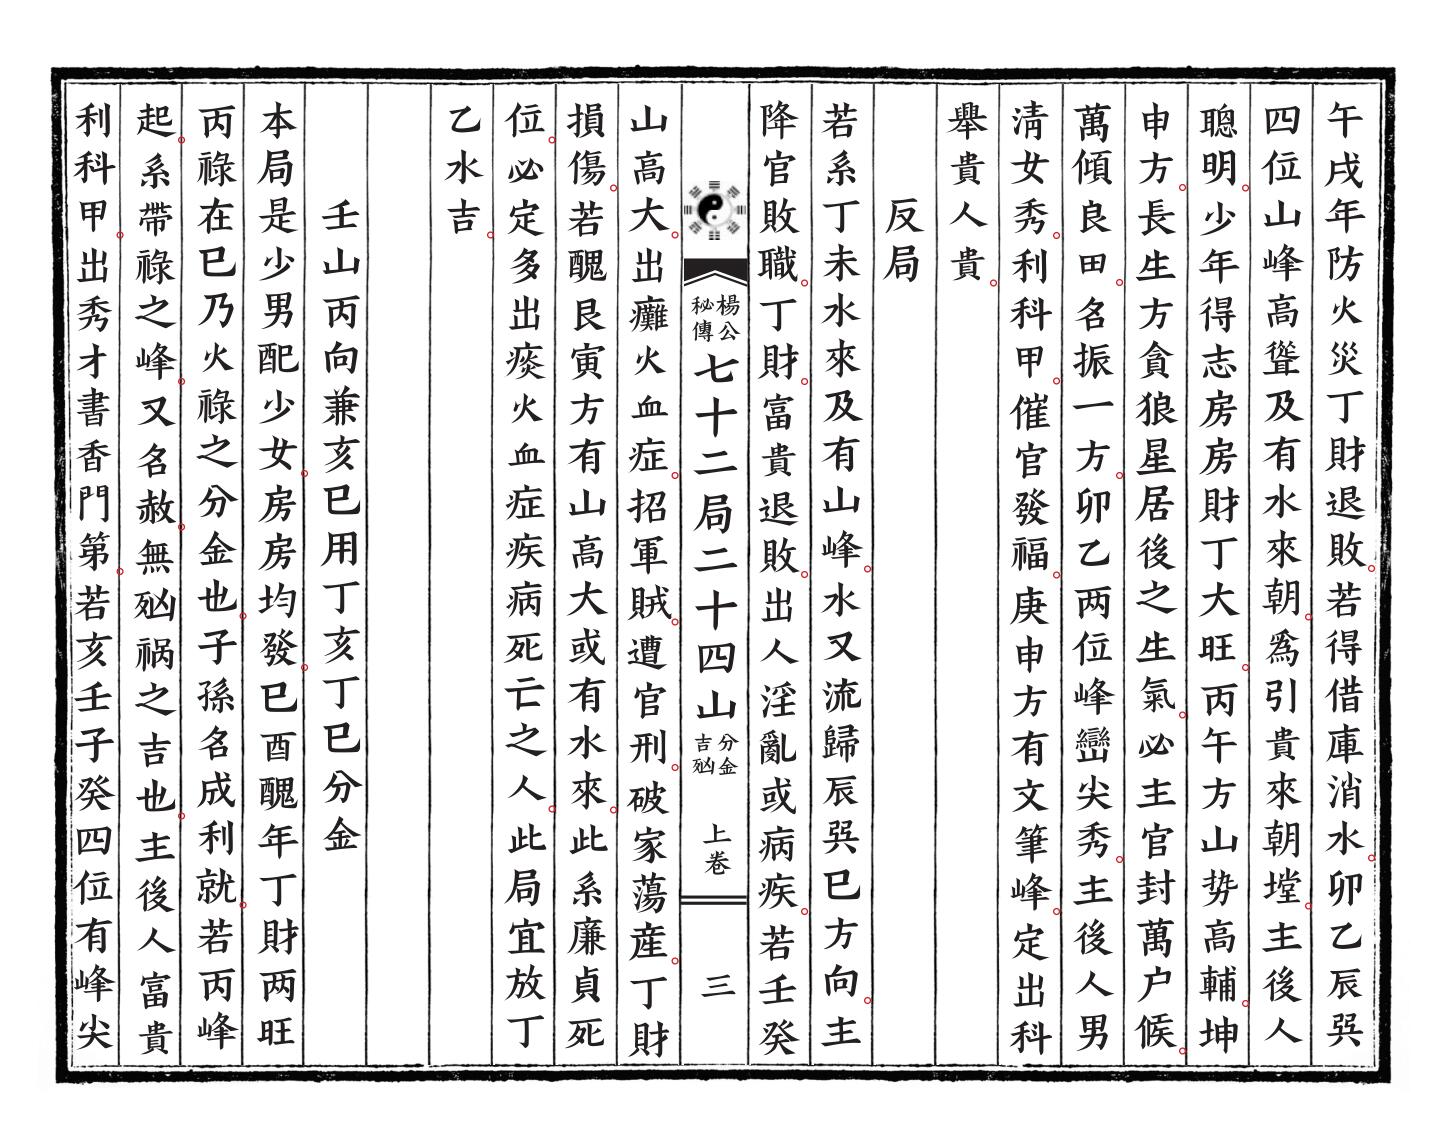 午戌年防火災丁財退敗。若得借庫消水。卯乙辰巽
四位山峰高聳及有水來朝。爲引貴來朝塋。主後人
聰明。少年得志房房財丁大旺。丙午方山势高輔。坤
申方。長生方貪狼星居後之生氣。必主官封萬户候。
萬傾良田。名振一方。卯乙两位峰巒尖秀。主後人男
淸女秀。利科甲。催官發福。庚申方有文筆峰。定出科
舉貴人貴。
反局
若系丁未水來及有山峰。水又流歸辰巽巳方向。主
降官敗職。丁財。富貴退敗。出人淫亂或病疾。若壬癸
楊公秘傳七十二局二十四山分金吉凶 上巻 三
山高大。出癱火血症。招軍賊。遭官刑。破家蕩産。丁財
損傷。若醜艮寅方有山高大或有水來。此系廉貞死
位。必定多出痰火血症疾病死亡之人。此局宜放丁
乙水吉。
壬山丙向兼亥巳用丁亥丁巳分金
本局是少男配少女。房房均發。巳酉醜年丁財两旺
丙祿在巳乃火祿之分金也。子孫名成利就。若丙峰
起。系帶祿之峰。又名赦。無㓙祸之吉也。主後人富貴
利科甲。出秀才書香門第。若亥壬子癸四位有峰尖